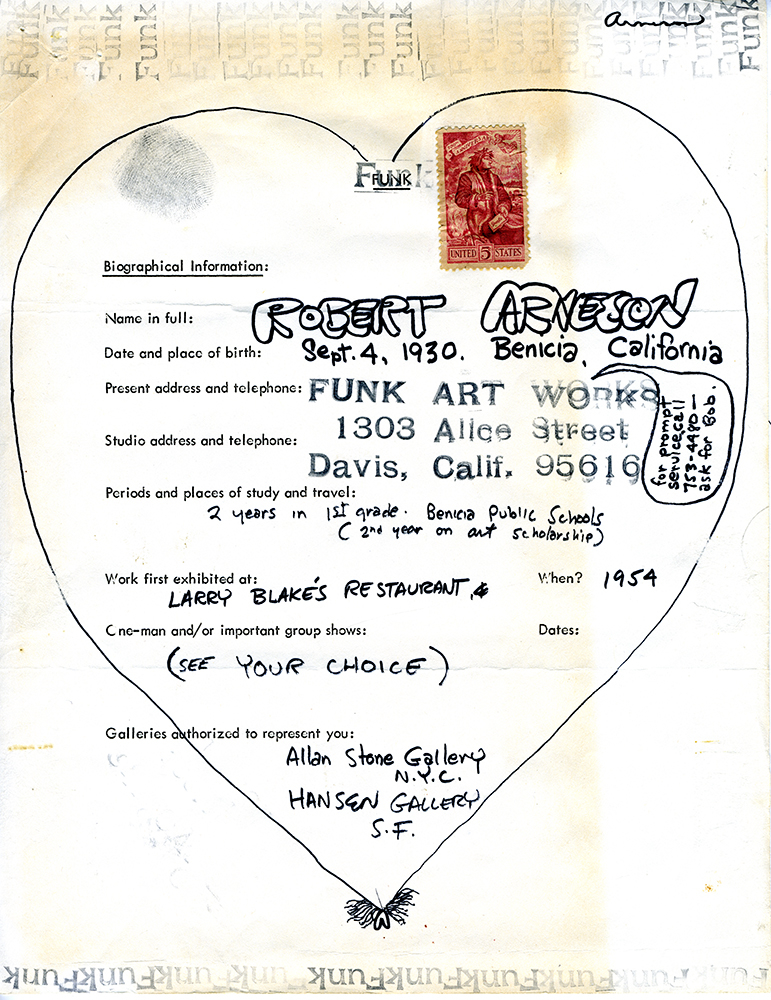 Funk Funk Funk Funk Funk Funk Funk Funk Funk Funk Funk
Arneson
Funk
FUNK
UNITED 5 STATES
Biographical Information:
Name in full: ROBERT ARNESON
Date and place of birth: Sept. 4, 1930. Benicia, California
Present address and telephone: FUNK ART WORKS
1303 Alice Street
Studio address and telephone:
Davis, Calif. 95616
for prompt
service, call
753-4480 —
ask for Bob.
Periods and places of study and travel:
2 years in 1st grade. Benicia Public Schools
(2nd year on art scholarship)
Work first exhibited at: When? 1954
LARRY BLAKE'S RESTAURANT,
One-man and/or important group shows: Dates:
(SEE YOUR CHOICE)
Galleries authorized to represent you:
Allan Stone Gallery
N.Y.C.
HANSEN GALLERY
S.F.
Funk Funk Funk Funk Funk Funk Funk Funk Funk Funk